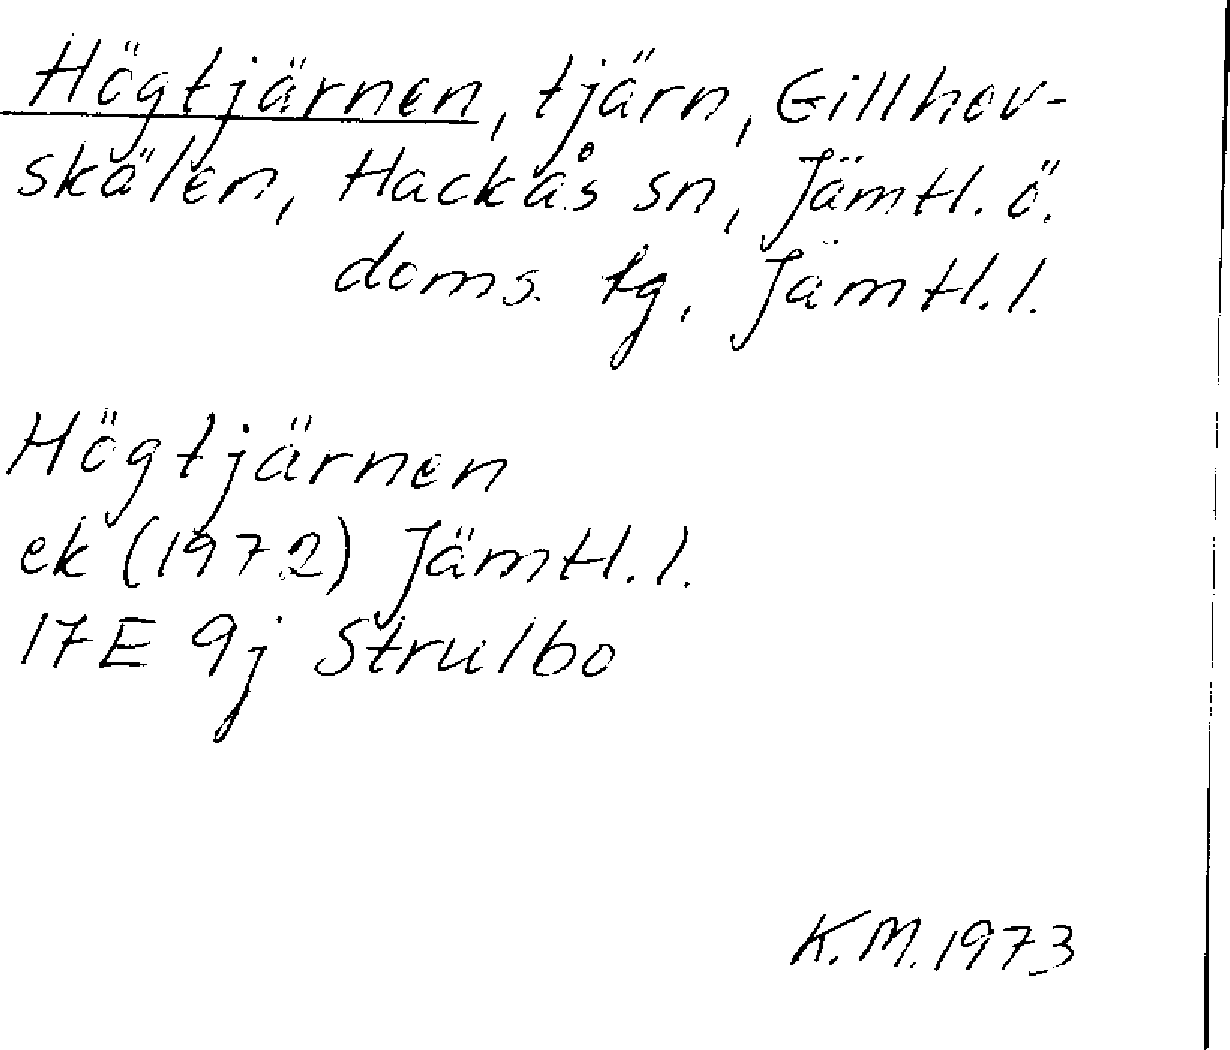 Högtjärnen, tjärn, Gillhov-
skälen, Hackås sn, Jämtl. ö.
doms. tg, Jämtl. l.
Högtjärnen
ek (1972) Jämtl. l.
17E 9j Strulbo
K.M. 1973